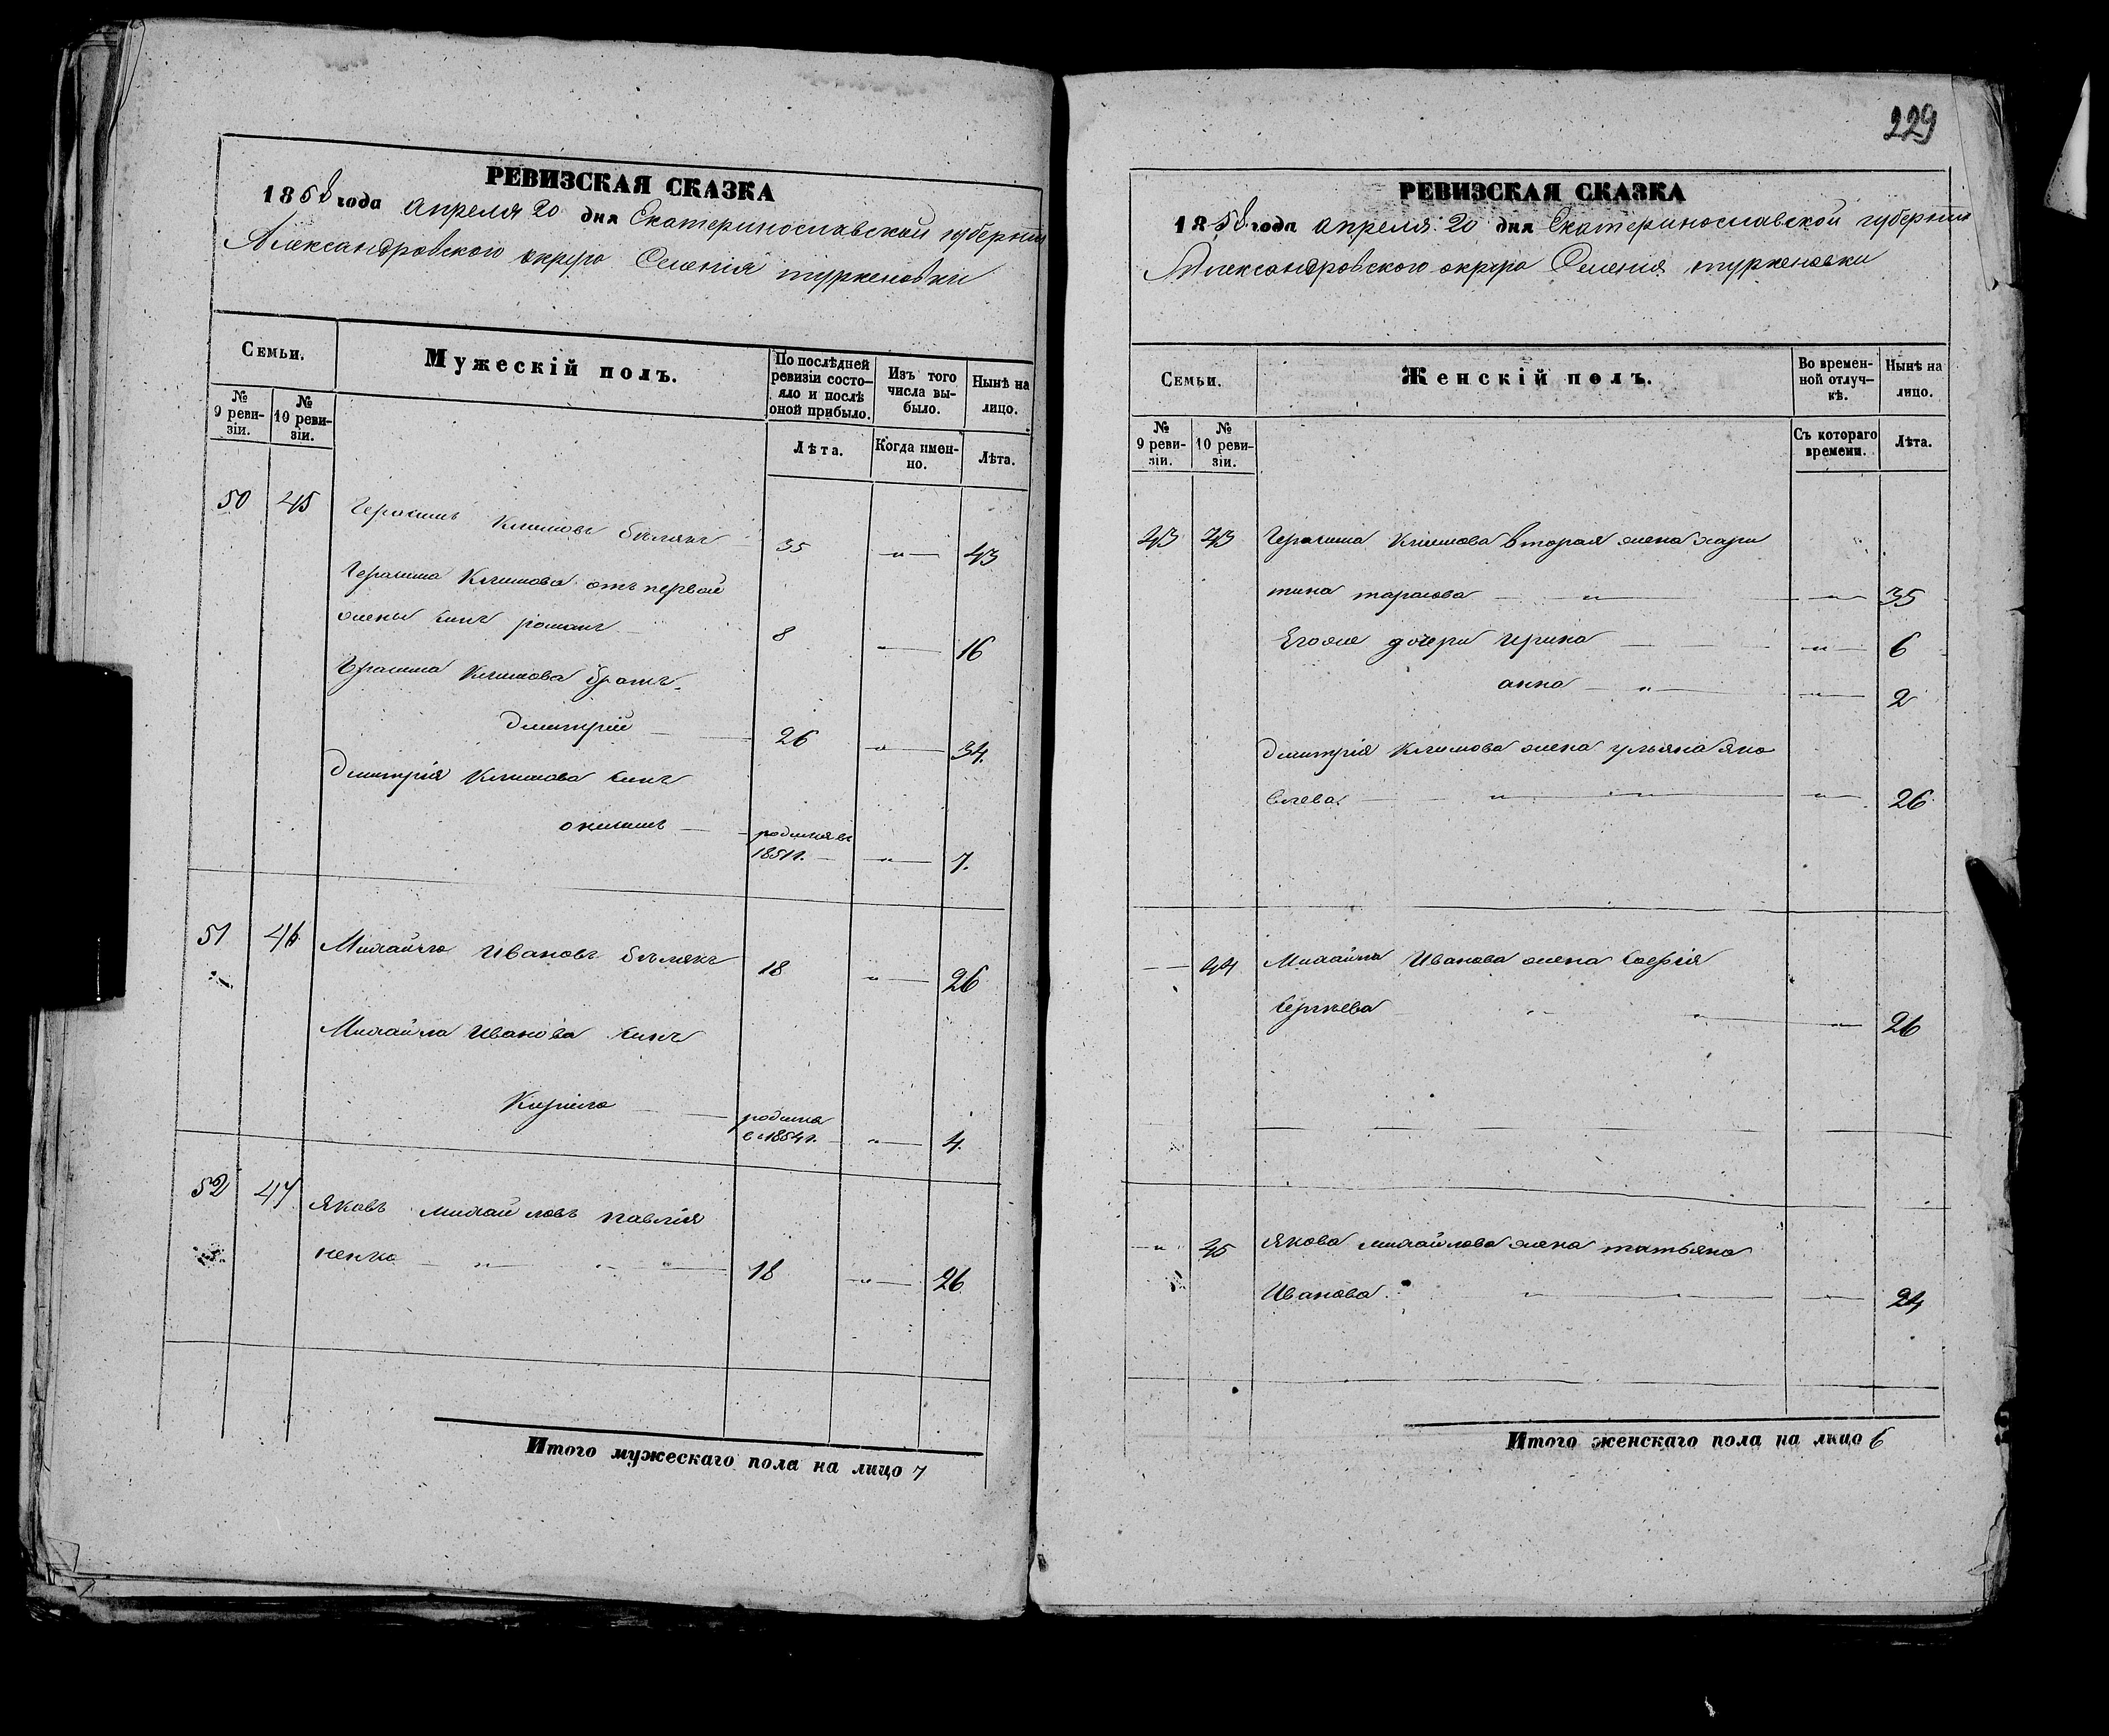 РЕВИЗСКАЯ СКАЗКА
1858 года апреля 20 дня Екатеринославской губерніи
Александровского округа Селенія туркеновки
Семьи.
Мужескій полъ.
По послѣдней ревизіи состояло и послѣ оной прибыло.
Изъ того числа выбыло.
Нынѣ на лицо.
№ 9 ревизіи.
№ 10 ревизіи.
Лѣта.
Когда именно.
Лѣта.
50 45 Герасимъ Климовъ бѣлякъ 35 — „ — 43
Герасима Климова отъ первой
жены сынъ романъ — 8 „ — 16
Герасима Климова братъ
Дмитрій — 26 „ — 34.
Дмитрія Климова сынъ
онисимъ — родился въ
1851 г. — „ — 7.
51 46 Михайло Ивановъ бѣлякъ 18 „ — 26
Михайла Иванова сынъ
Кирило — родился
въ 1854 г. „ — 4.
52 47 Яковъ михайловъ павлія
ненко — „ — „ — 18 — „ — 26
Итого мужескаго пола на лицо 7
229
РЕВИЗСКАЯ СКАЗКА
1858 года апреля 20 дня Екатеринославской губерніи
Александровского округа Селенія туркеновки
Семьи.
Женскій полъ.
Во временной отлучкѣ.
Нынѣ на лицо.
№ 9 ревизіи.
№ 10 ревизіи.
Съ котораго времени.
Лѣта.
43 43 Герасима Климова вторая жена хари
тина тарасова — „ — — „ — 35
Егоже дочери Ирина — — „ — 6
анна — „ — — „ — 2
Дмитрія Климова жена ульяна яко
влева. — „ — „ — — „ — 26
— 44 Михайла Иванова жена Софія
Сергѣева „ „ — „ — 26
— „ 45 Якова михайлова жена татьяна
Иванова. „ — „ — — 24
Итого женскаго пола на лицо 6